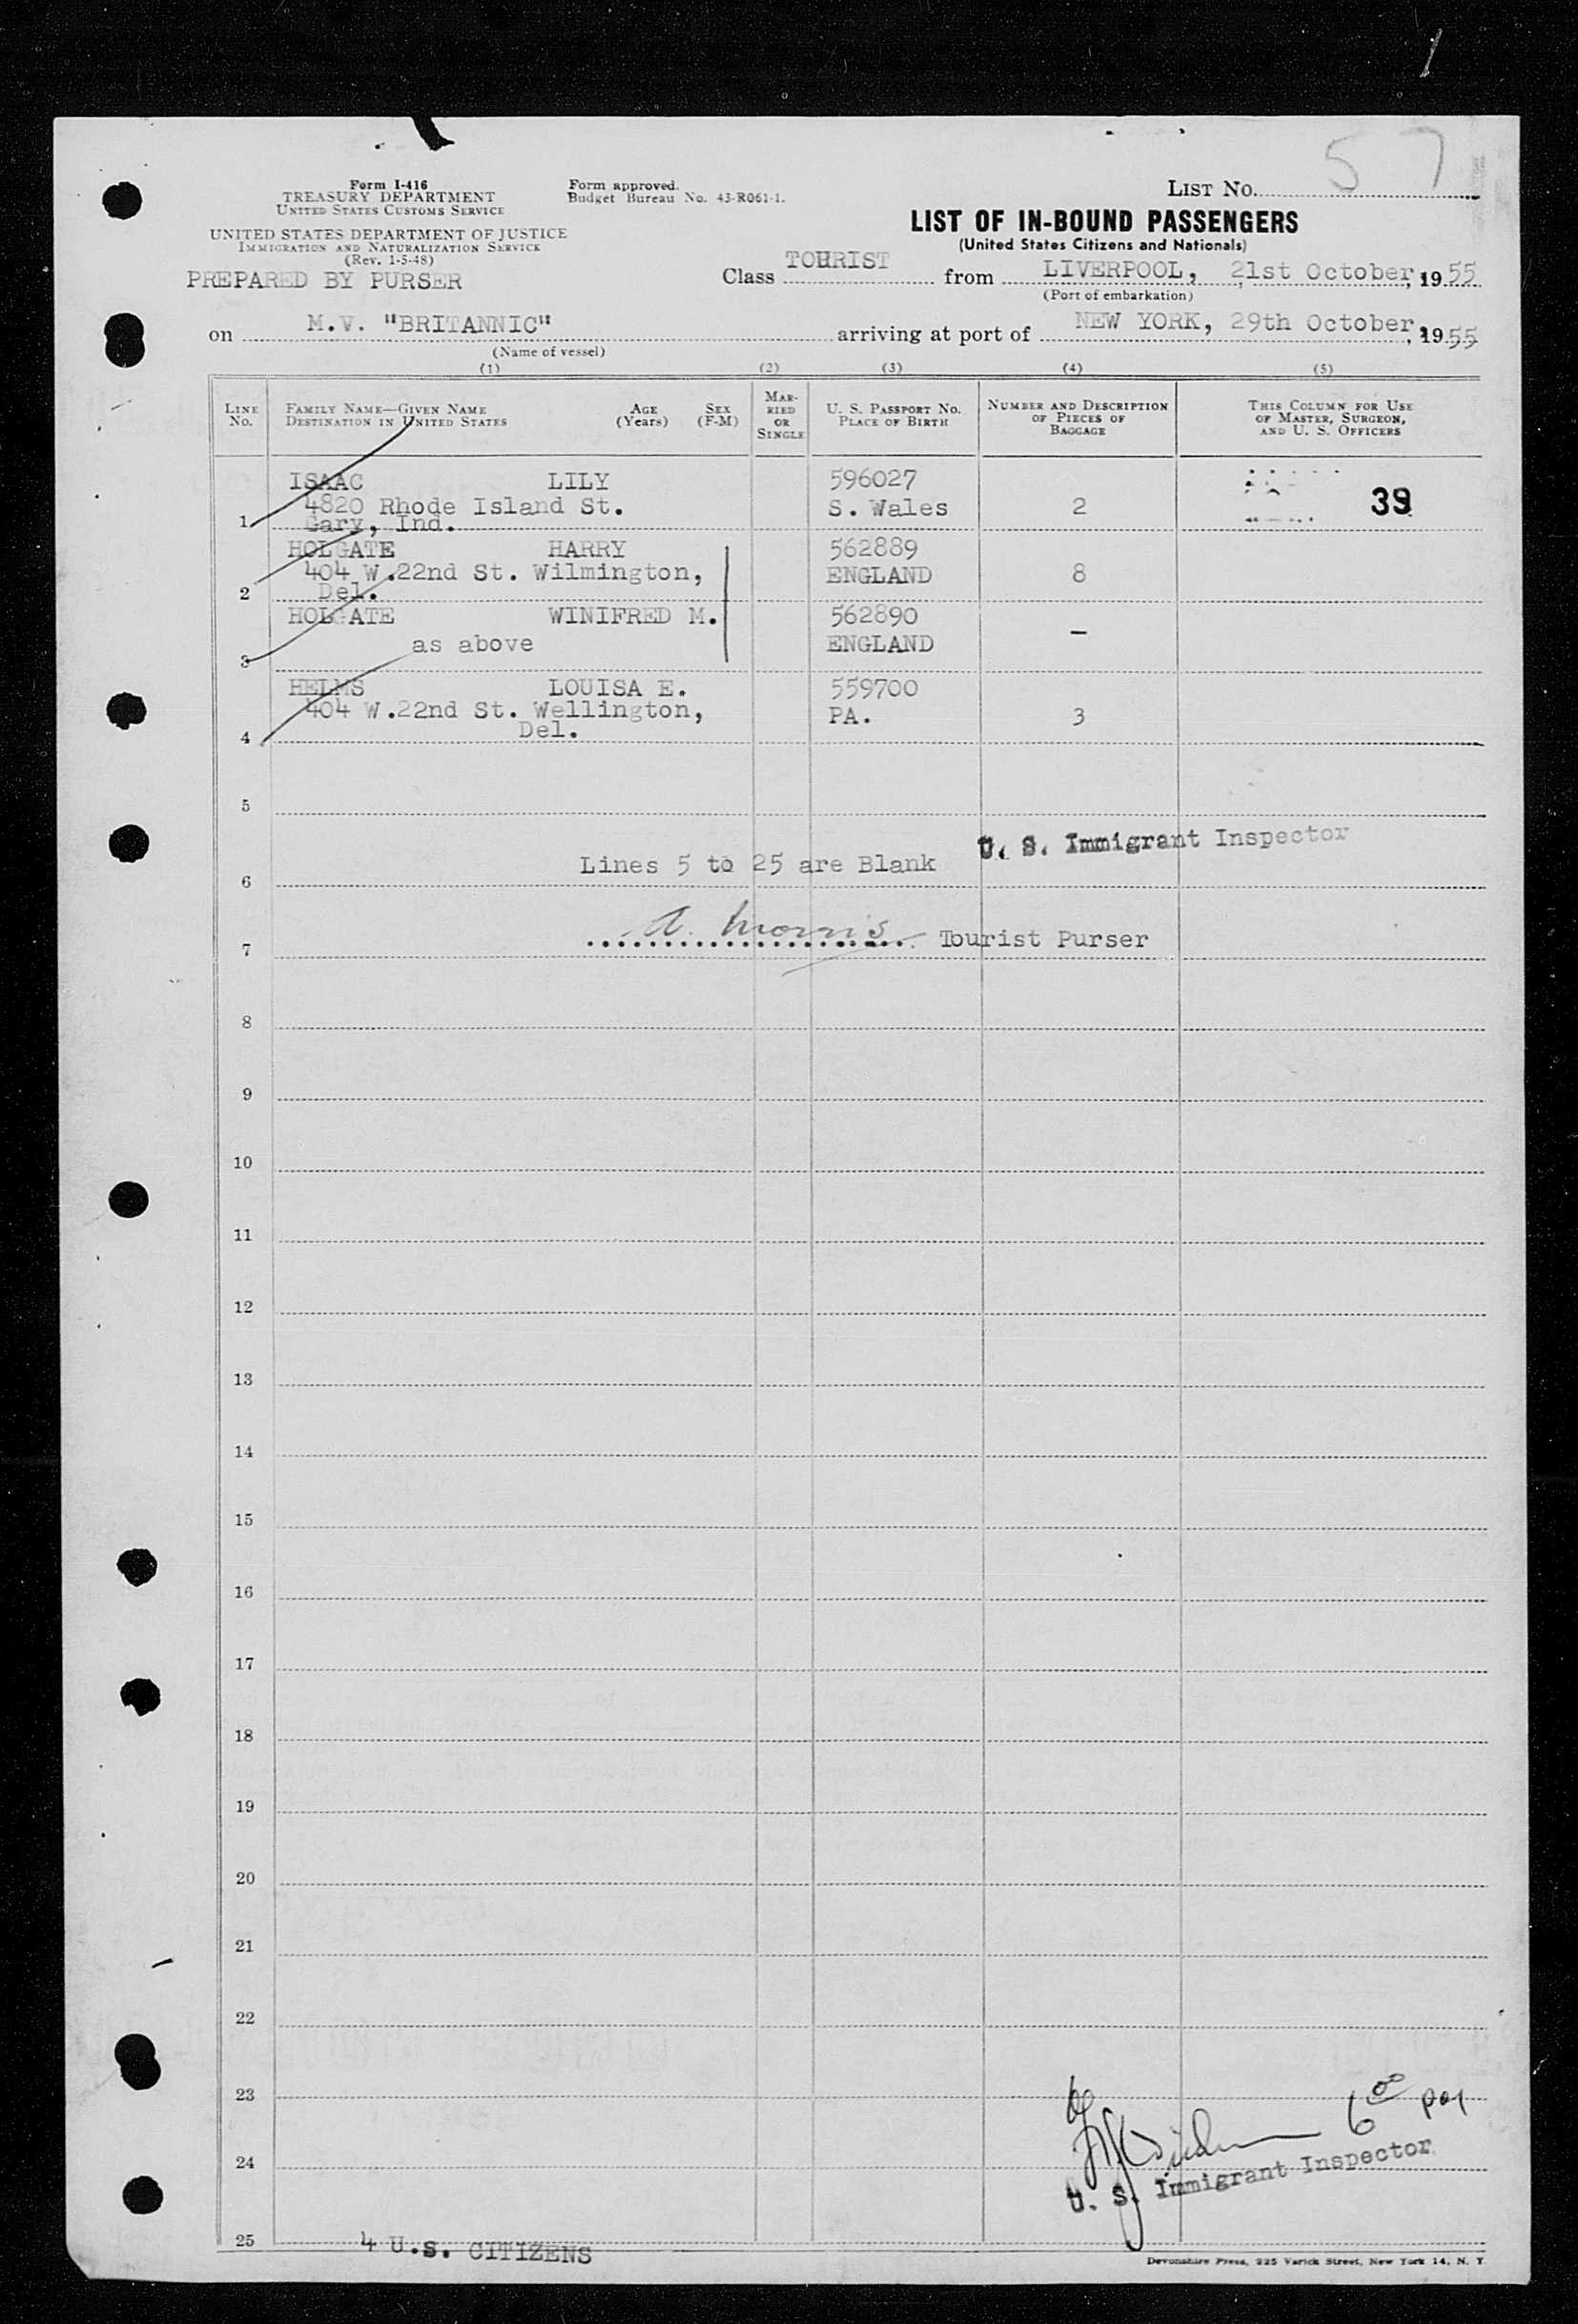 57
Form I-416
TREASURY DEPARTMENT
UNITED STATES CUSTOMS SERVICE
UNITED STATES DEPARTMENT OF JUSTICE
IMMIGRATION AND NATURALIZATION SERVICE
(Rev. 1-5-48)
PREPARED BY PURSER
Form approved.
Budget Bureau No. 43-R061-1.
LIST No.
LIST OF IN-BOUND PASSENGERS
(United States Citizens and Nationals)
Class TOURIST from LIVERPOOL, 21st October, 1955
(Port of embarkation)
on M.V. "BRITANNIC" arriving at port of NEW YORK, 29th October, 1955
(Name of vessel)
(1) (2) (3) (4) (5)
LINE No.
FAMILY NAME—GIVEN NAME
DESTINATION IN UNITED STATES
AGE (Years)
SEX (F-M)
MARRIED OR SINGLE
U. S. PASSPORT NO.
PLACE OF BIRTH
NUMBER AND DESCRIPTION OF PIECES OF BAGGAGE
THIS COLUMN FOR USE OF MASTER, SURGEON, AND U. S. OFFICERS
ISAAC LILY 596027
4820 Rhode Island St. S. Wales 2 39
1 Gary, Ind.
HOLGATE HARRY 562889
404 W.22nd St. Wilmington, ENGLAND 8
2 Del.
HOLGATE WINIFRED M. 562890
as above ENGLAND –
3
HELMS LOUISA E. 559700
404 W.22nd St. Wellington, PA. 3
4 Del.
5
U. S. Immigrant Inspector
Lines 5 to 25 are Blank
6
A. Morris Tourist Purser
7
8
9
10
11
12
13
14
15
16
17
18
19
20
21
22
23
6 00 pm
24
U. S. Immigrant Inspector
25
4 U.S. CITIZENS
Devonshire Press, 225 Varick Street, New York 14, N. Y